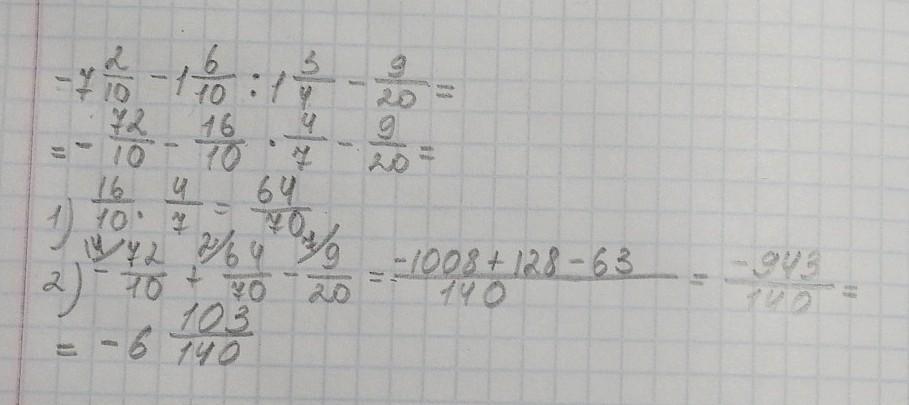 -7 2/10 - 1 6/10 : 1 3/4 - 9/20 =
= - 72/10 - 16/10 · 4/7 - 9/20 =
1) 16/10 · 4/7 = 64/70
2) 14/ - 72/10 + 2/ 64/70 - 7/ 9/20 = -1008+128-63/140 = -943/140 =
= -6 103/140